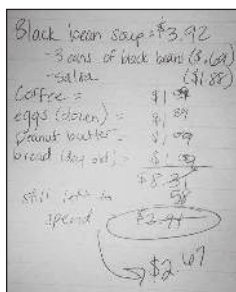 Black bean soup = $3.92
- 3 cans of black beans ($.68)
- salsa ($1.88)
Coffee = $1
eggs (dozen) = $1.89
Peanut butter =
bread (day old) = $1
$8.31
still left to
spend
$2.69